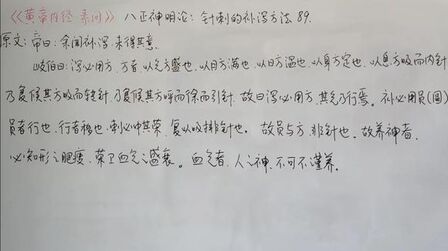 《《黄帝内经 素问》》八正神明论：针刺的补泻方法 89.
原文：帝曰：余闻补泻，未得其意。
岐伯曰：泻必用方，方者，以气方盛也，以月方满也，以日方温也，以身方定也，以息方吸而内针
乃复候其方吸而转针，乃复候其方呼而徐而引针，故曰泻必用方，其气乃行焉。补必用员（圆）
员者行也，行者移也，刺必中其荣，复以吸排针也。故员与方，非针也。故养神者
必知形之肥瘦，荣卫血气之盛衰。血气者，人之神，不可不谨养。